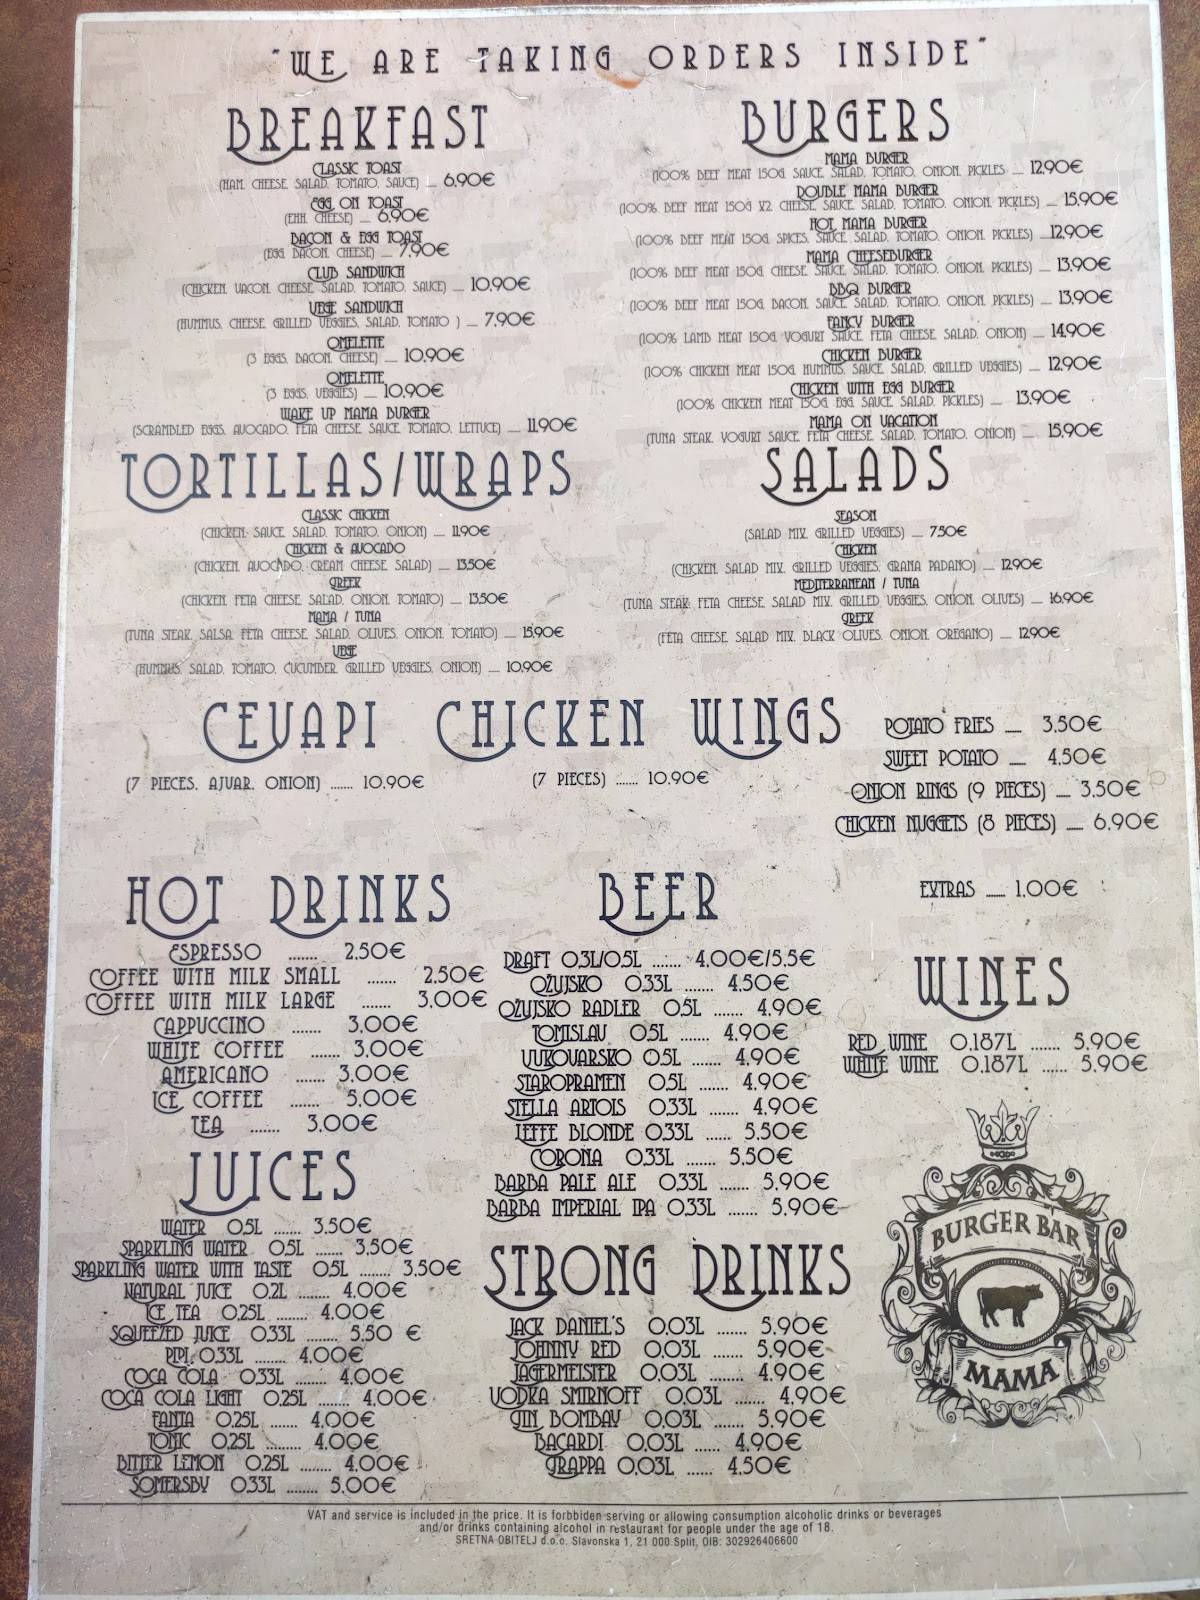 "WE ARE TAKING ORDERS INSIDE"
BREAKFAST
CLASSIC TOAST
(HAM, CHEESE, SALAD, TOMATO, SAUCE) ... 6,90€
EGG ON TOAST
(EHH, CHEESE) ... 6,90€
BACON & EGG TOAST
(EGG, BACON, CHEESE) ... 7,90€
CLUB SANDWICH
(CHICKEN, VACON, CHEESE, SALAD, TOMATO, SAUCE) ... 10,90€
VEGE SANDWICH
(HUMMUS, CHEESE, GRILLED VEGGIES, SALAD, TOMATO ) ... 7,90€
OMELETTE
(3 EGGS, BACON, CHEESE) ... 10,90€
OMELETTE
(3 EGGS, VEGGIES) ... 10,90€
WAKE UP MAMA BURGER
(SCRAMBLED EGGS, AVOCADO, FETA CHEESE, SAUCE, TOMATO, LETTUCE) ... 11,90€
BURGERS
MAMA BURGER
(100% BEEF MEAT 150G, SAUCE, SALAD, TOMATO, ONION, PICKLES ... 12,90€
DOUBLE MAMA BURGER
(100% BEEF MEAT 150G X2, CHEESE, SAUCE, SALAD, TOMATO, ONION, PICKLES) ... 15,90€
HOT MAMA BURGER
(100% BEEF MEAT 150G, SPICES, SAUCE, SALAD, TOMATO, ONION, PICKLES) ... 12,90€
MAMA CHEESEBURGER
(100% BEEF MEAT 150G, CHEESE, SAUCE, SALAD, TOMATO, ONION, PICKLES) ... 13,90€
BBQ BURGER
(100% BEEF MEAT 150G, BACON, SAUCE, SALAD, TOMATO, ONION, PICKLES) ... 13,90€
FANCY BURGER
(100% LAMB MEAT 150G, YOGURT SAUCE, FETA CHEESE, SALAD, ONION) ... 14,90€
CHICKEN BURGER
(100% CHICKEN MEAT 150G, HUMMUS, SAUCE, SALAD, GRILLED VEGGIES) ... 12,90€
CHICKEN WITH EGG BURGER
(100% CHICKEN MEAT 150G, EGG, SAUCE, SALAD, PICKLES) ... 13,90€
MAMA ON VACATION
(TUNA STEAK, YOGURT SAUCE, FETA CHEESE, SALAD, TOMATO, ONION) ... 15,90€
TORTILLAS/WRAPS
CLASSIC CHICKEN
(CHICKEN, SAUCE, SALAD, TOMATO, ONION) ... 11,90€
CHICKEN & AVOCADO
(CHICKEN, AVOCADO, CREAM CHEESE, SALAD) ... 13,50€
GREEK
(CHICKEN, FETA CHEESE, SALAD, ONION, TOMATO) ... 13,50€
MAMA / TUNA
(TUNA STEAK, SALSA, FETA CHEESE, SALAD, OLIVES, ONION, TOMATO) ... 15,90€
VEGE
(HUMMUS, SALAD, TOMATO, CUCUMBER, GRILLED VEGGIES, ONION) ... 10,90€
SALADS
SEASON
(SALAD MIX, GRILLED VEGGIES) ... 7,50€
CHICKEN
(CHICKEN, SALAD MIX, GRILLED VEGGIES, GRANA PADANO) ... 12,90€
MEDITERRANEAN / TUNA
(TUNA STEAK, FETA CHEESE, SALAD MIX, GRILLED VEGGIES, ONION, OLIVES) ... 16,90€
GREEK
(FETA CHEESE, SALAD MIX, BLACK OLIVES, ONION, OREGANO) ... 12,90€
CEVAPI
(7 PIECES, AJVAR, ONION) ....... 10.90€
CHICKEN WINGS
(7 PIECES) ...... 10.90€
POTATO FRIES ... 3,50€
SWEET POTATO ... 4,50€
ONION RINGS (9 PIECES) ... 3,50€
CHICKEN NUGGETS (8 PIECES) ... 6,90€
EXTRAS ... 1,00€
HOT DRINKS
ESPRESSO ...... 2,50€
COFFEE WITH MILK SMALL ...... 2,50€
COFFEE WITH MILK LARGE ...... 3,00€
CAPPUCCINO ...... 3,00€
WHITE COFFEE ...... 3,00€
AMERICANO ...... 3,00€
ICE COFFEE ...... 5,00€
TEA ...... 3,00€
BEER
DRAFT 0,3L/0,5L ...... 4,00€/5,5€
OŽUJSKO 0,33L ...... 4,50€
OŽUJSKO RADLER 0,5L ...... 4,90€
TOMISLAV 0,5L ...... 4,90€
VUKOVARSKO 0,5L ...... 4,90€
STAROPRAMEN 0,5L ...... 4,90€
STELLA ARTOIS 0,33L ...... 4,90€
LEFFE BLONDE 0,33L ...... 5,50€
CORONA 0,33L ...... 5,50€
BARBA PALE ALE 0,33L ...... 5,90€
BARBA IMPERIAL IPA 0,33L ...... 5,90€
WINES
RED WINE 0,187L ...... 5,90€
WHITE WINE 0,187L ...... 5,90€
JUICES
WATER 0,5L ...... 3,50€
SPARKLING WATER 0,5L ...... 3,50€
SPARKLING WATER WITH TASTE 0,5L ....... 3,50€
NATURAL JUICE 0,2L ....... 4,00€
ICE TEA 0,25L ....... 4,00€
SQUEEZED JUICE 0,33L ....... 5,50 €
PIPI 0,33L ....... 4,00€
COCA COLA 0,33L ....... 4,00€
COCA COLA LIGHT 0,25L ....... 4,00€
FANTA 0,25L ...... 4,00€
TONIC 0,25L ....... 4,00€
BITTER LEMON 0,25L ....... 4,00€
SOMERSBY 0,33L ....... 5,00€
STRONG DRINKS
JACK DANIEL'S 0,03L ...... 5,90€
JOHNNY RED 0,03L ...... 5,90€
JAGERMEISTER 0,03L ...... 4,90€
VODKA SMIRNOFF 0,03L ...... 4,90€
GIN BOMBAY 0,03L ...... 5,90€
BACARDI 0,03L ...... 4,90€
GRAPPA 0,03L ...... 4,50€
BURGER BAR
MAMA
VAT and service is included in the price. It is forbbiden serving or allowing consumption alcoholic drinks or beverages
and/or drinks containing alcohol in restaurant for people under the age of 18.
SRETNA OBITELJ d.o.o. Slavonska 1, 21 000 Split, OIB: 302926406600